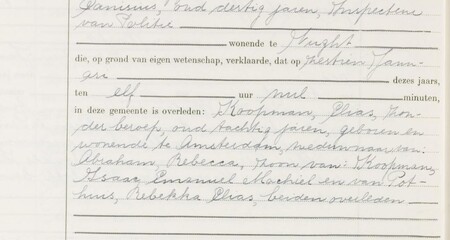 Canisius, oud dertig jaren, Inspecteur
van Politie
wonende te Vught
die, op grond van eigen wetenschap, verklaarde, dat op zestien Janu-
ari dezes jaars,
ten elf uur nul minuten,
in deze gemeente is overleden: Koopman, Elias, zon-
der beroep, oud tachtig jaren, geboren en
wonende te Amsterdam, weduwnaar van:
Abraham, Rebecca, zoon van: Koopman,
Isaac Emanuel Machiel en van Pot-
huis, Rebekka Elias, beiden overleden